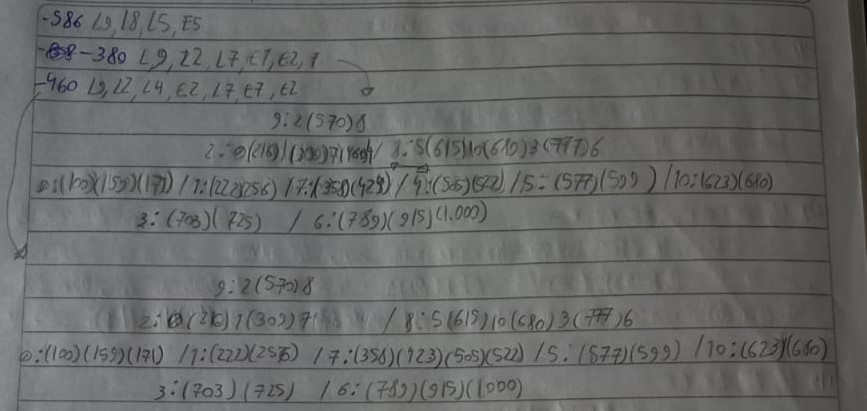 -586 L9, L8, L5, E5
-380 L,9, L2, L7, E1, E2, 7
-460 L9, L2, L4, E2, L7, E7, E2
9:2(570)8
2: 0(216)1(300)7 / 8:5(615)10(680)3(777)6
0:(100)(159)(171) / 1:(222)(256) / 7:(358)(423) / 4:(505)(522) / 5:(577)(599) / 10:(623)(680)
3:(703)(725) / 6:(789)(915)(1.000)
9:2(570)8
2:0(216)1(309)7 / 8:5(615)10(680)3(777)6
0:(100)(159)(171) / 1:(222)(256) / 7:(358)(423)(505)(522) / 5:(577)(599) / 10:(623)(680)
3:(703)(725) / 6:(789)(915)(1000)